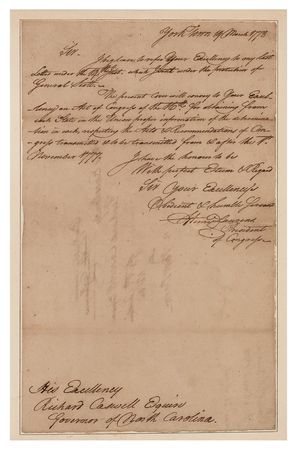 York Town 19 March 1778
Sir.
I beg leave to refer Your Excellency to my last
Letter under the which I sent under the protection of
General
The present Conveyance will convey to Your Excel-
lency an Act of Congress of the for obtaining from
each State in the Union proper information of the determina-
tion in each respecting the Acts & Recommendations of Con-
gress transmitted & to be transmitted from & after the 1st
November 1777.
I have the honour to be
With perfect Esteem & Regard
Sir Your Excellency's
Obedient & humble Servant
Henry Laurens
President
of Congress
His Excellency
Richard Caswell Esquire
Governor of North Carolina.